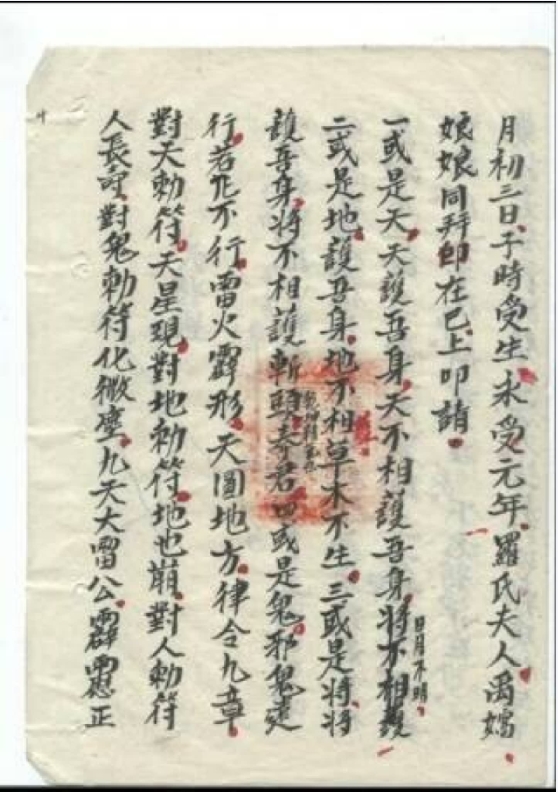 月初三日子時受生永受元年羅氏夫人禹
娘娘同拜印在已上叩請
一或是天天護吾身天不相護吾身將不相護
日月不明
二或是地護吾身地不相草木不生三或是將將
護吾身將不相護斬頭奉君四或是鬼邪鬼速
行若不行雷火霹形天圓地方律令九章
對天勅符天星現對地勅符地也崩對人勅符
人長對鬼勅符化微塵九天大雷公霹靂正